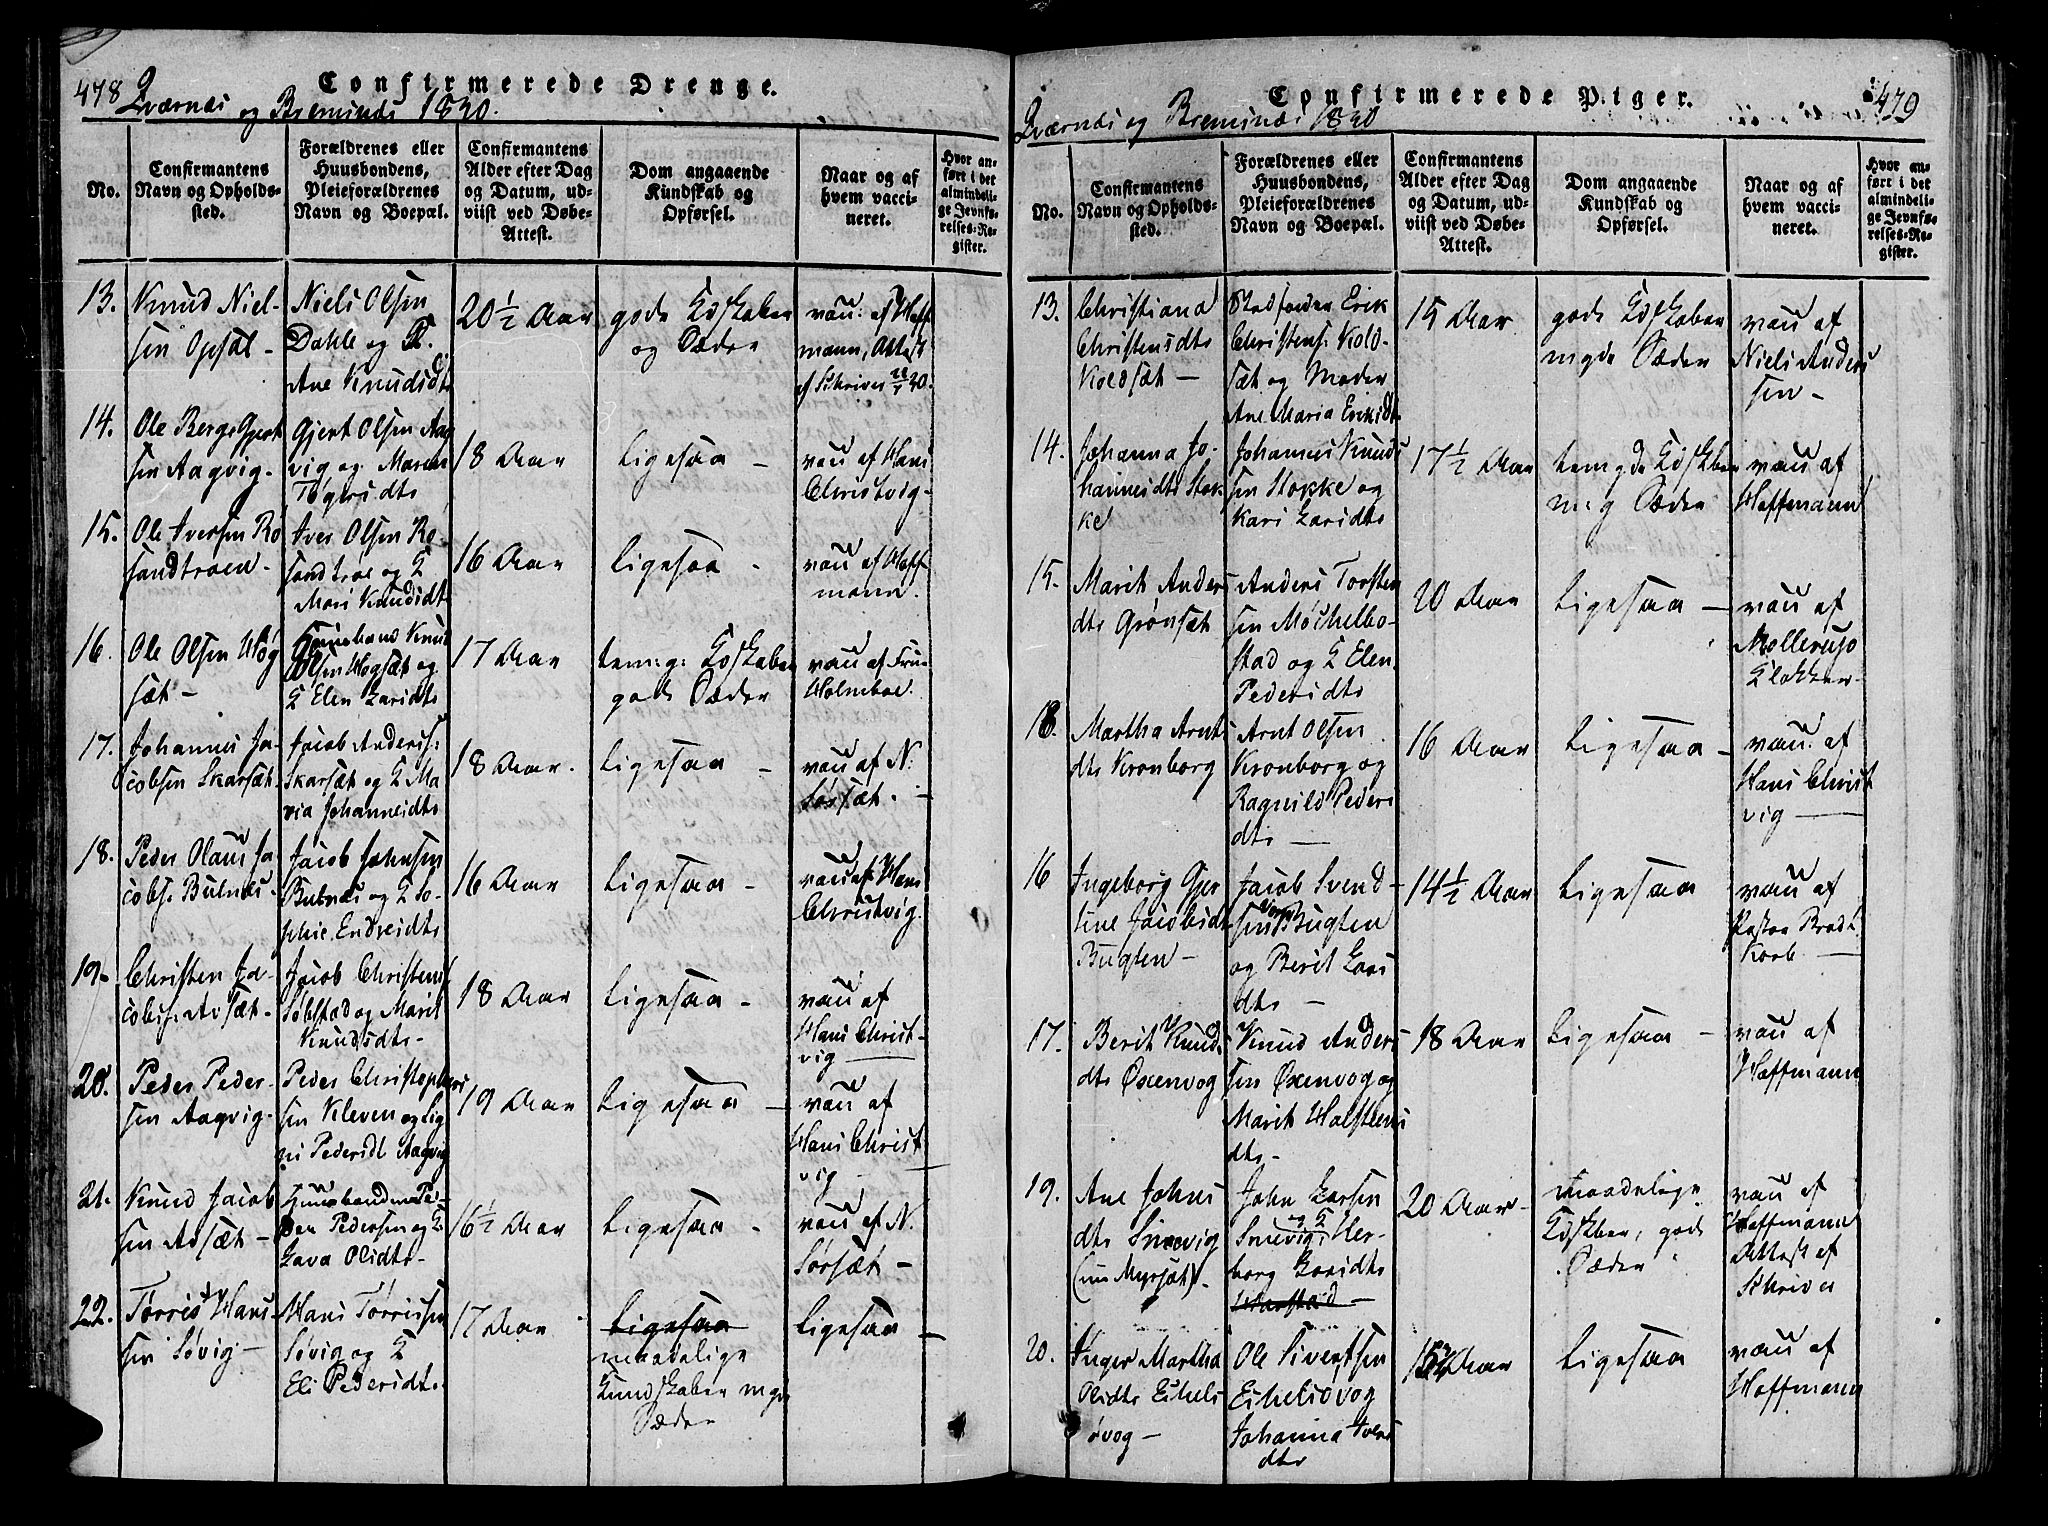 478
Confirmerede Drenge.
Qværnæs og Bremsnæs 1820.
No.
Confirmantens Navn og Opholds-sted.
Forældrenes eller Huusbondens, Pleieforældrenes Navn og Boepæl.
Confirmantens Alder efter Dag og Datum, ud-viist ved Døbe-Attest.
Dom angaaende Kundskab og Opførsel.
Naar og af hvem vacci-neret.
Hvor an-ført i det almindeli-ge Jevnfø-relses-Re-gister.
13.
Knud Niel-
sen Opsal -
Niels Olsen
Dahle og
Ane Knudsdtr
20½ Aar
gode Kdskaber
og Sæder
vau: af Hoff
mann, Attest
af Schriver
14.
Ole Berge Gjert
sen Aagvig -
Gjert Olsen Aag
vig og Maren
18 Aar
ligesaa -
vau af Hans
Christvig -
15.
Ole Iversen Ro
sandtroen -
Iver Olsen Ro-
sandtrøe og K
Mari Knudsdt
16 Aar
ligesaa -
vau af Hoff
mann.
16.
Ole Olsen Høg
sæt -
Huusbond Knud
Olsen Høgsæt og
K Elen Larsdtr
17 Aar
tem: g: Kdskaber
gode Sæder
vau af Frue
Holmboe.
17.
Johannes Ja-
cobsen Skarsæt
Jacob Anders:
Skarsæt og K Ma
ria Johannesdtr
18 Aar.
ligesaa -
vau af N:
Sørsæt. -
18.
Peder Olaus Ja
cobs. Bulnæs -
Jacob Johnsen
Bulnæs og K So-
phie Endresdtr
16 Aar
ligesaa -
vau af Hans
Christvig.
19.
Christen Ja-
cobs: Avsæt -
Jacob Christens
Søbstad og Marit
Knudsdtr -
18 Aar
ligesaa -
vau af
Hans Christ-
vig -
20.
Peder Peder-
sen Aagvig -
Peder Christophers
sen Kleven og Sig
ni Pedersdt Aagvig
19 Aar
ligesaa -
vau af
Hans Christ
vig -
21.
Knud Jacob
sen Avsæt -
Huusbonden Pe-
der Pedersen og K
Olsdtr -
16½ Aar
ligesaa -
vau af N.
Sørsæt -
22.
Tørris Hans
sen Søvig -
Hans Tørrissen
Søvig og K
Eli Pedersdt.
17 Aar
ligesaa
maadelige
Kundskaber
Sæder
ligesaa -
479
Confirmerede Piger.
Qværnæs og Bremsnæs 1820
No.
Confirmantens Navn og Opholds-sted.
Forældrenes eller Huusbondens, Pleieforældrenes Navn og Boepæl.
Confirmantens Alder efter Dag og Datum, ud-viist ved Døbe-Attest.
Dom angaaende Kundskab og Opførsel.
Naar og af hvem vacci-neret.
Hvor an-ført i det almindeli-ge Jevnfø-relses-Re-gister.
13.
Christiana
Christensdtr
Koldsæt -
Stedfader Erik
Christens: Kold-
sæt og Moder
Ane Maria Eriksdt
15 Aar
gode Kdskaber
Sæder
vau af
Niels Anders
sen -
14.
Johanna Jo-
hannesdtr Stok
ke
Johannes Knuds
sen Stokke og
Kari Larsdtr
17½ Aar
Sæder
vau af
Hoffmann
15.
Marit Anders
dtr Grønsæt
Anders Torsten
sen Møchelbo-
stad og K Elen
Pedersdtr
20 Aar
ligesaa -
vau af
Møllerup
Klokker
18.
Martha Arnt
dtr Kronborg
Arnt Olsen
Kronborg og
Ragnild Peders
dtr -
16 Aar
ligesaa -
vau. af
Hans Christ
vig -
16
Ingeborg Gjer
tine Jacobsdt
Bugten -
Jacob Svend-
sen Bugten
og Berit Lars
dtr -
14½ Aar
ligesaa
vau af
Pastor
-
17.
Berit Knuds
dtr Øxenvog
Knud Anders
sen Øxenvog og
Marit Halsteens
dtr -
18 Aar
ligesaa -
vau af
Hoffmann
19.
Ane Johns
dtr Snevig
(nu Myrsæt) -
John Larsen
Snevig og K Her-
borg Larsdtr
20 Aar -
maadelige
Kdskber, gode
Sæder
vau af
Hoffmann
Attest af
Schriver
20.
Inger Martha
Olsdtr Eikels
øvog -
Ole Sivertsen
Eikelsøvog
Johanna Ivers
dtr
15½ Aar
ligesaa
vau af
Hoffmann